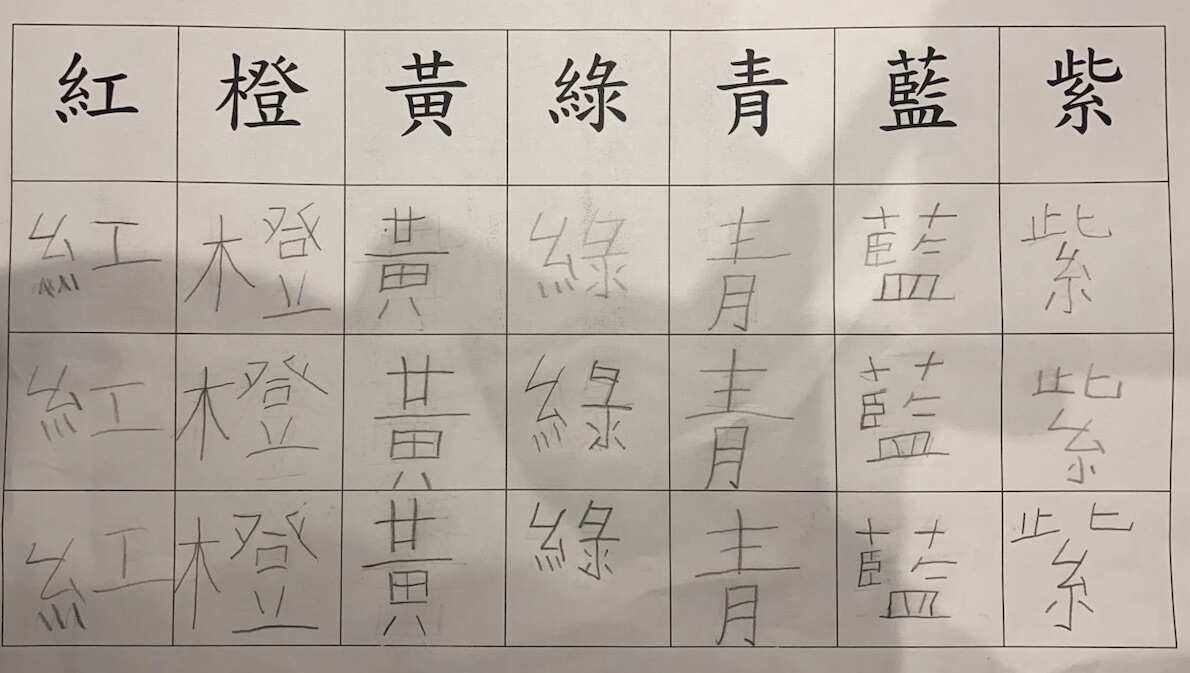 紅 橙 黃 綠 青 藍 紫
紅 橙 黃 綠 青 藍 紫
紅 橙 黃 綠 青 藍 紫
紅 橙 黃 綠 青 藍 紫